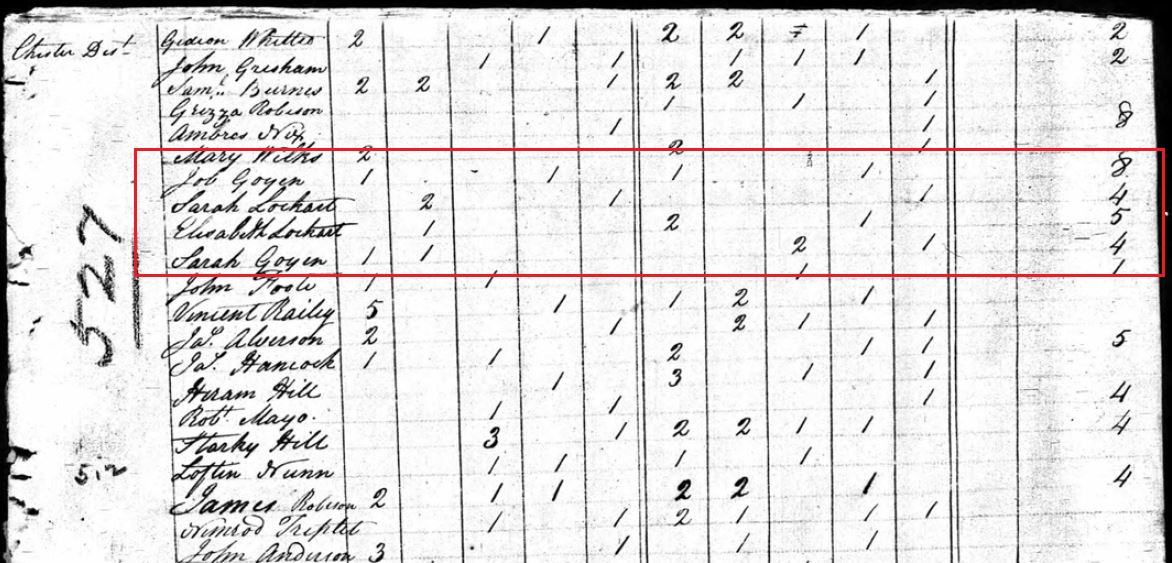 Chester Dist. Gideon Whitted 2 1 2 2 1 2
John Gresham 1 1 1 1 1 2
Saml. Burnes 2 2 1 2 2 1
Grizza Robeson 1 1 1
Ambros Nix 1 1 8
Mary Wilks 2 2 1
Job Goyen 1 1 1 1 8
Sarah Lockart 2 1 1 4
Elisabeth Lockart 1 2 1 5
Sarah Goyen 1 1 2 1 4
John Foote 1 1 1 1
Vincent Railey 5 1 1 2 1
Jas. Alverson 2 1 2 1 1
Jas. Hancock 1 1 2 1 1 5
Hiram Hill 1 3 1 1
Robt. Mayo. 1 1 1 4
Starky Hill 3 1 2 2 1 1 4
Loftin Nunn 1 1 1 1
James Robeson 2 1 1 2 2 1 4
Nimrod Triplet 1 1 2 1 1 1
John Anderson 3 1 1 1
527